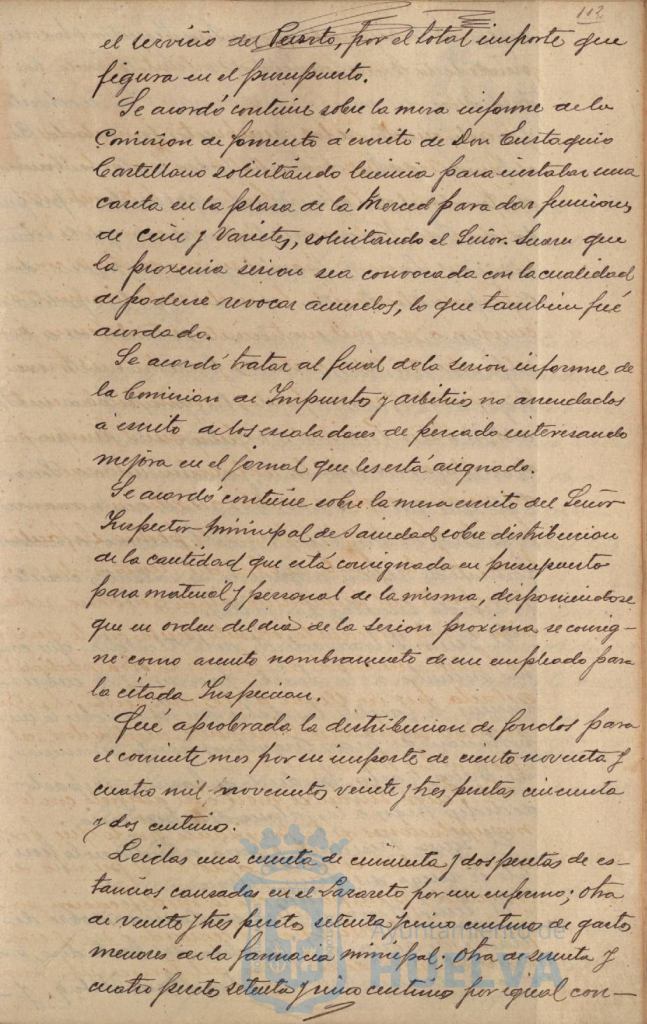 112
el servicio del Puerto, por el total importe que
figura en el presupuesto.
Se acordó continue sobre la mesa informe de la
Comision de fomento á escrito de Don Eustaquio
Castellano solicitando licencia para instalar una
caseta en la plaza de la Merced para dar funciones
de Cine y Varietes, solicitando el Señor Suarez que
la proxima sesion sea convocada con la cualidad
de poderse revocar acuerdos, lo que tambien fué
acordado.
Se acordó tratar al final de la sesion informe de
la Comision de Impuestos y arbitrios no arrendados
á escrito de los escaladores de pescado interesando
mejora en el jornal que les está asignado.
Se acordó continue sobre la mesa escrito del Señor
Inspector Municipal de Sanidad sobre distribucion
de la cantidad que está consignada en presupuesto
para material y personal de la misma, disponiendose
que en orden del dia de la sesion proxima se consig-
ne como asunto nombramiento de un empleado para
la citada Inspeccion.
Fué aprobada la distribucion de fondos para
el corriente mes por su importe de ciento noventa y
cuatro mil novecientos veinte y tres pesetas cincuenta
y dos centimos.
Leidas una cuenta de cincuenta y dos pesetas de es-
tancias causadas en el Lazareto por un enfermo; otra
de veinte y tres pesetas setenta y cinco centimos de gastos
menores de la farmacia municipal; otra de sesenta y
cuatro pesetas setenta y cinco centimos por igual con-
Ayuntamiento de
HUELVA